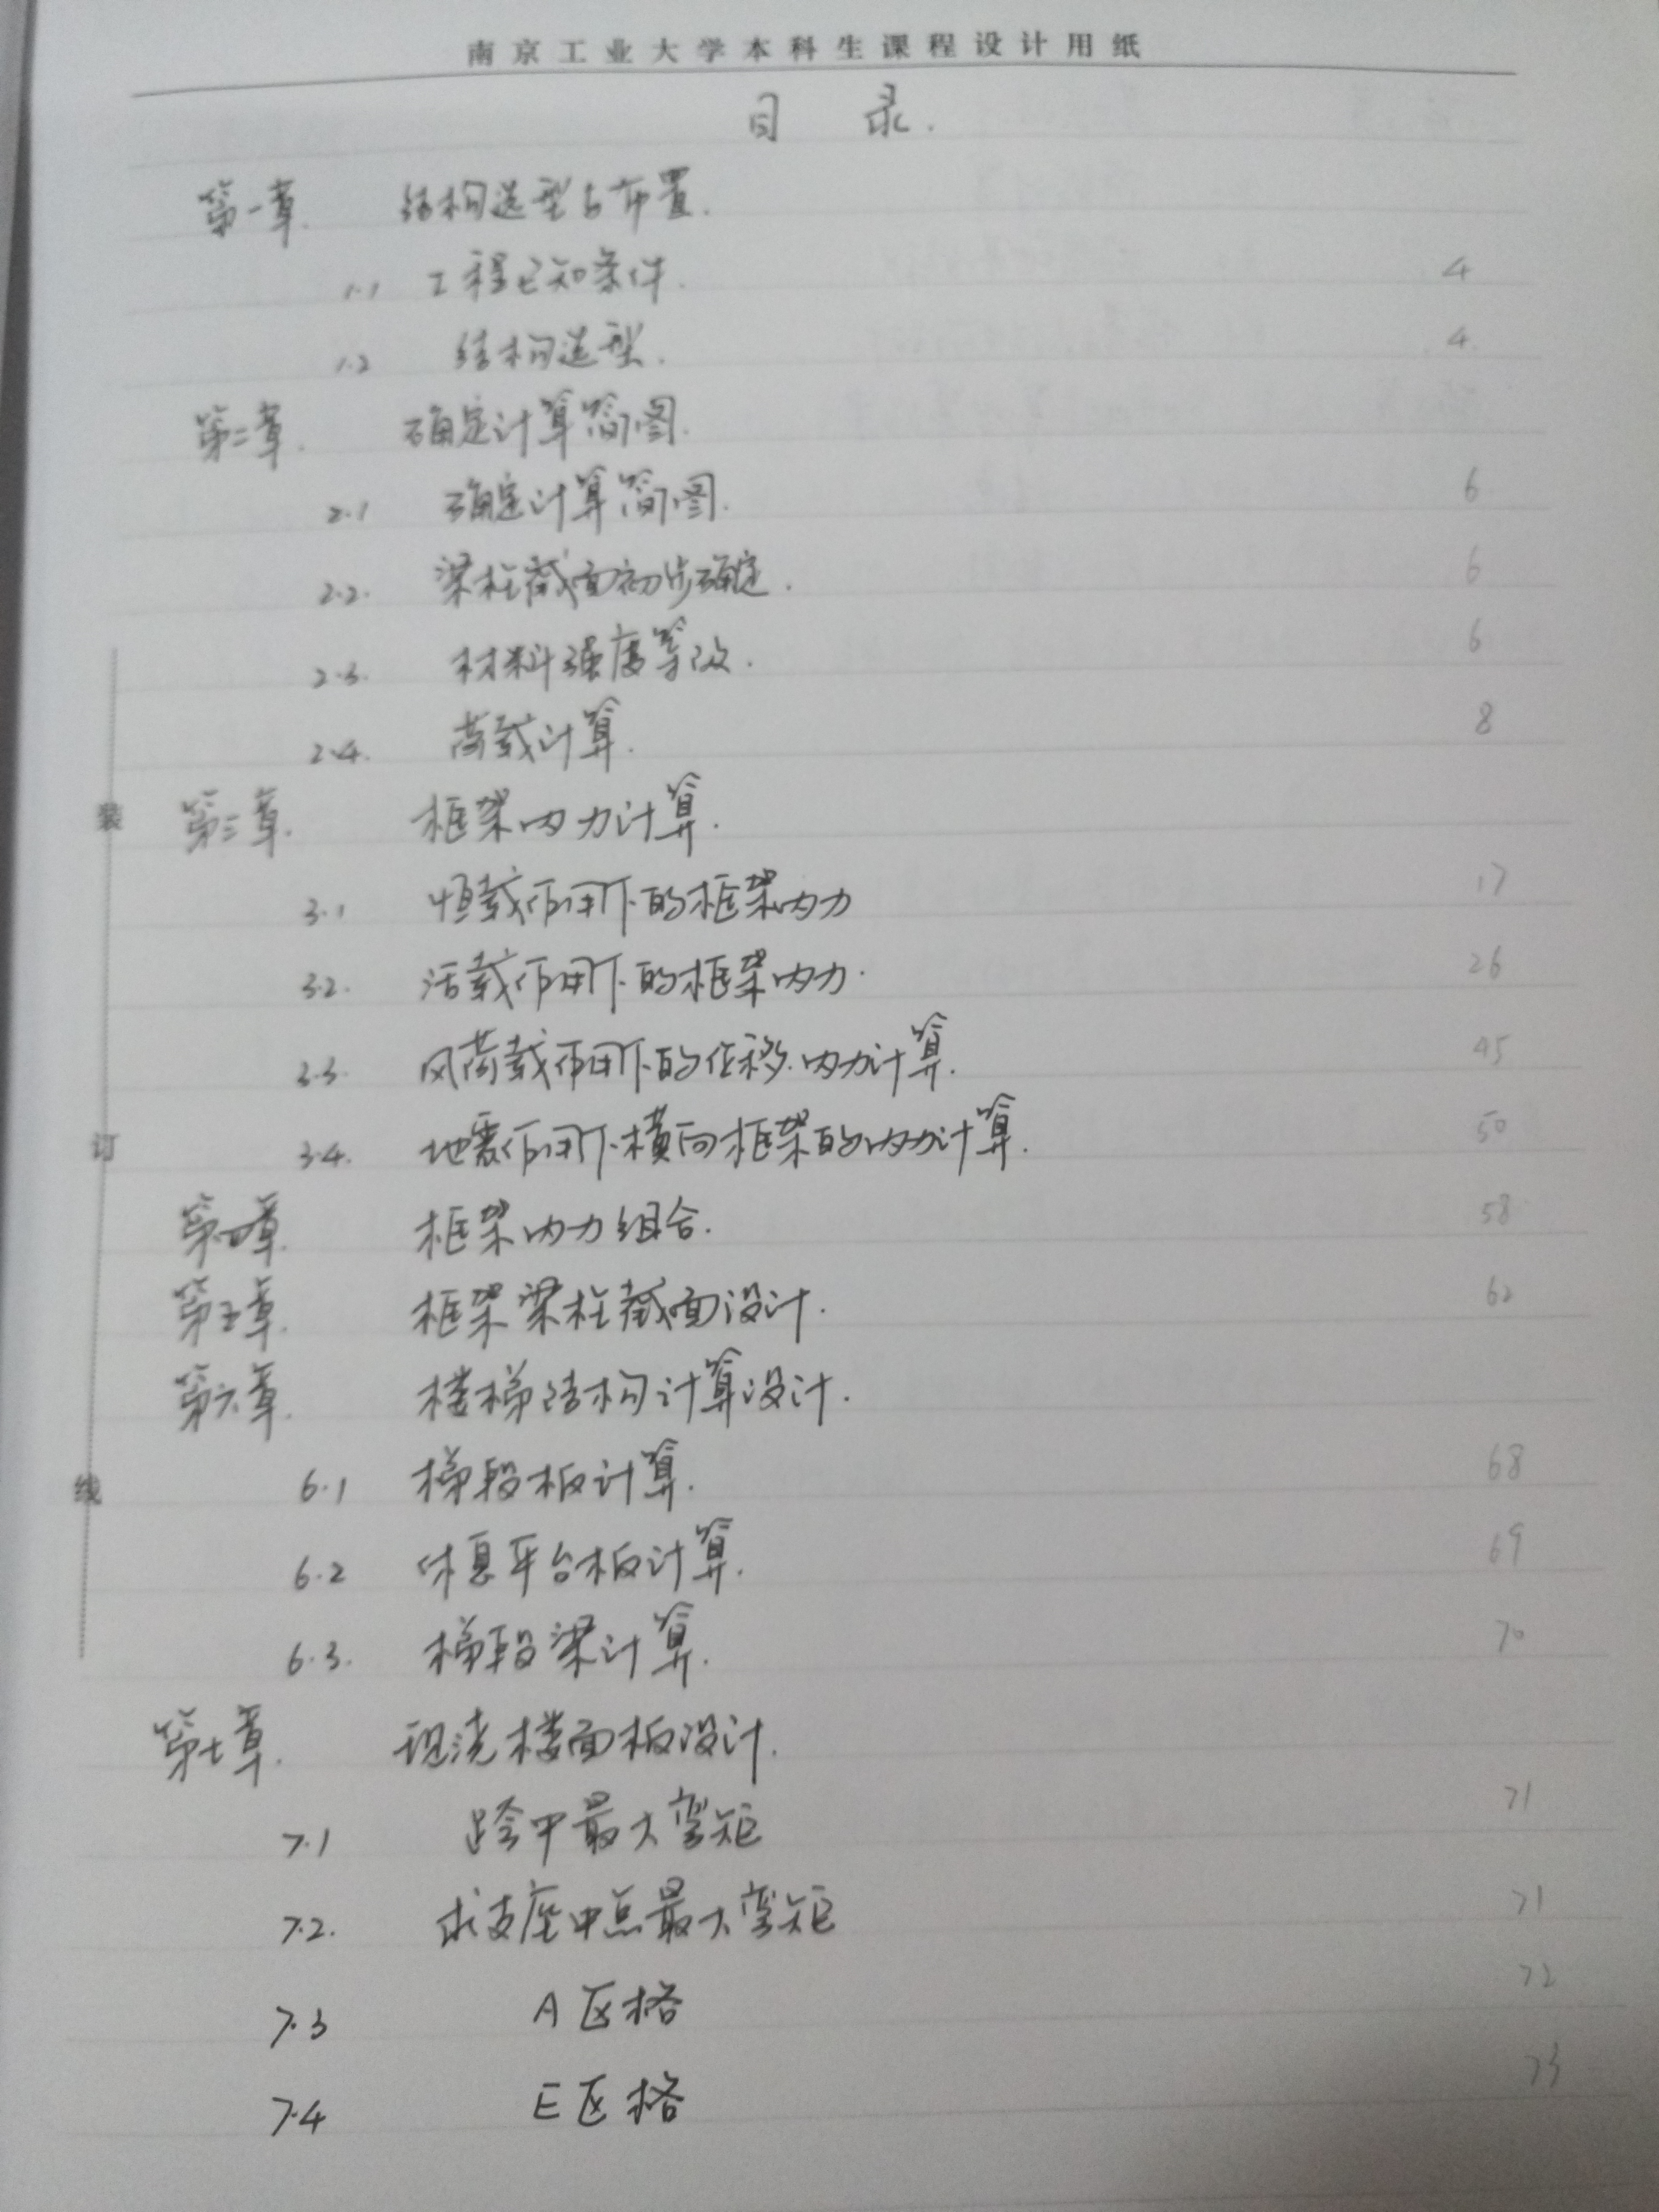 南京工业大学本科生课程设计用纸
目 录.
第一章. 结构选型与布置.
1.1 工程已知条件. 4
1.2 结构选型. 4
第二章. 确定计算简图.
2.1 确定计算简图. 6
2.2. 梁柱截面初步确定. 6
2.3. 材料强度等级. 6
2.4. 荷载计算. 8
第三章. 框架内力计算.
3.1 恒载作用下的框架内力 17
3.2. 活载作用下的框架内力. 26
3.3. 风荷载作用下的位移.内力计算. 45
3.4. 地震作用下横向框架的内力计算. 50
第四章. 框架内力组合. 58
第五章. 框架梁柱截面设计. 62
第六章. 楼梯结构计算设计.
6.1 梯段板计算. 68
6.2 休息平台板计算. 69
6.3. 梯段梁计算. 70
第七章. 现浇楼面板设计.
7.1 跨中最大弯矩 71
7.2. 求支座中点最大弯矩 71
7.3 A区格 72
7.4 E区格 73
装
订
线